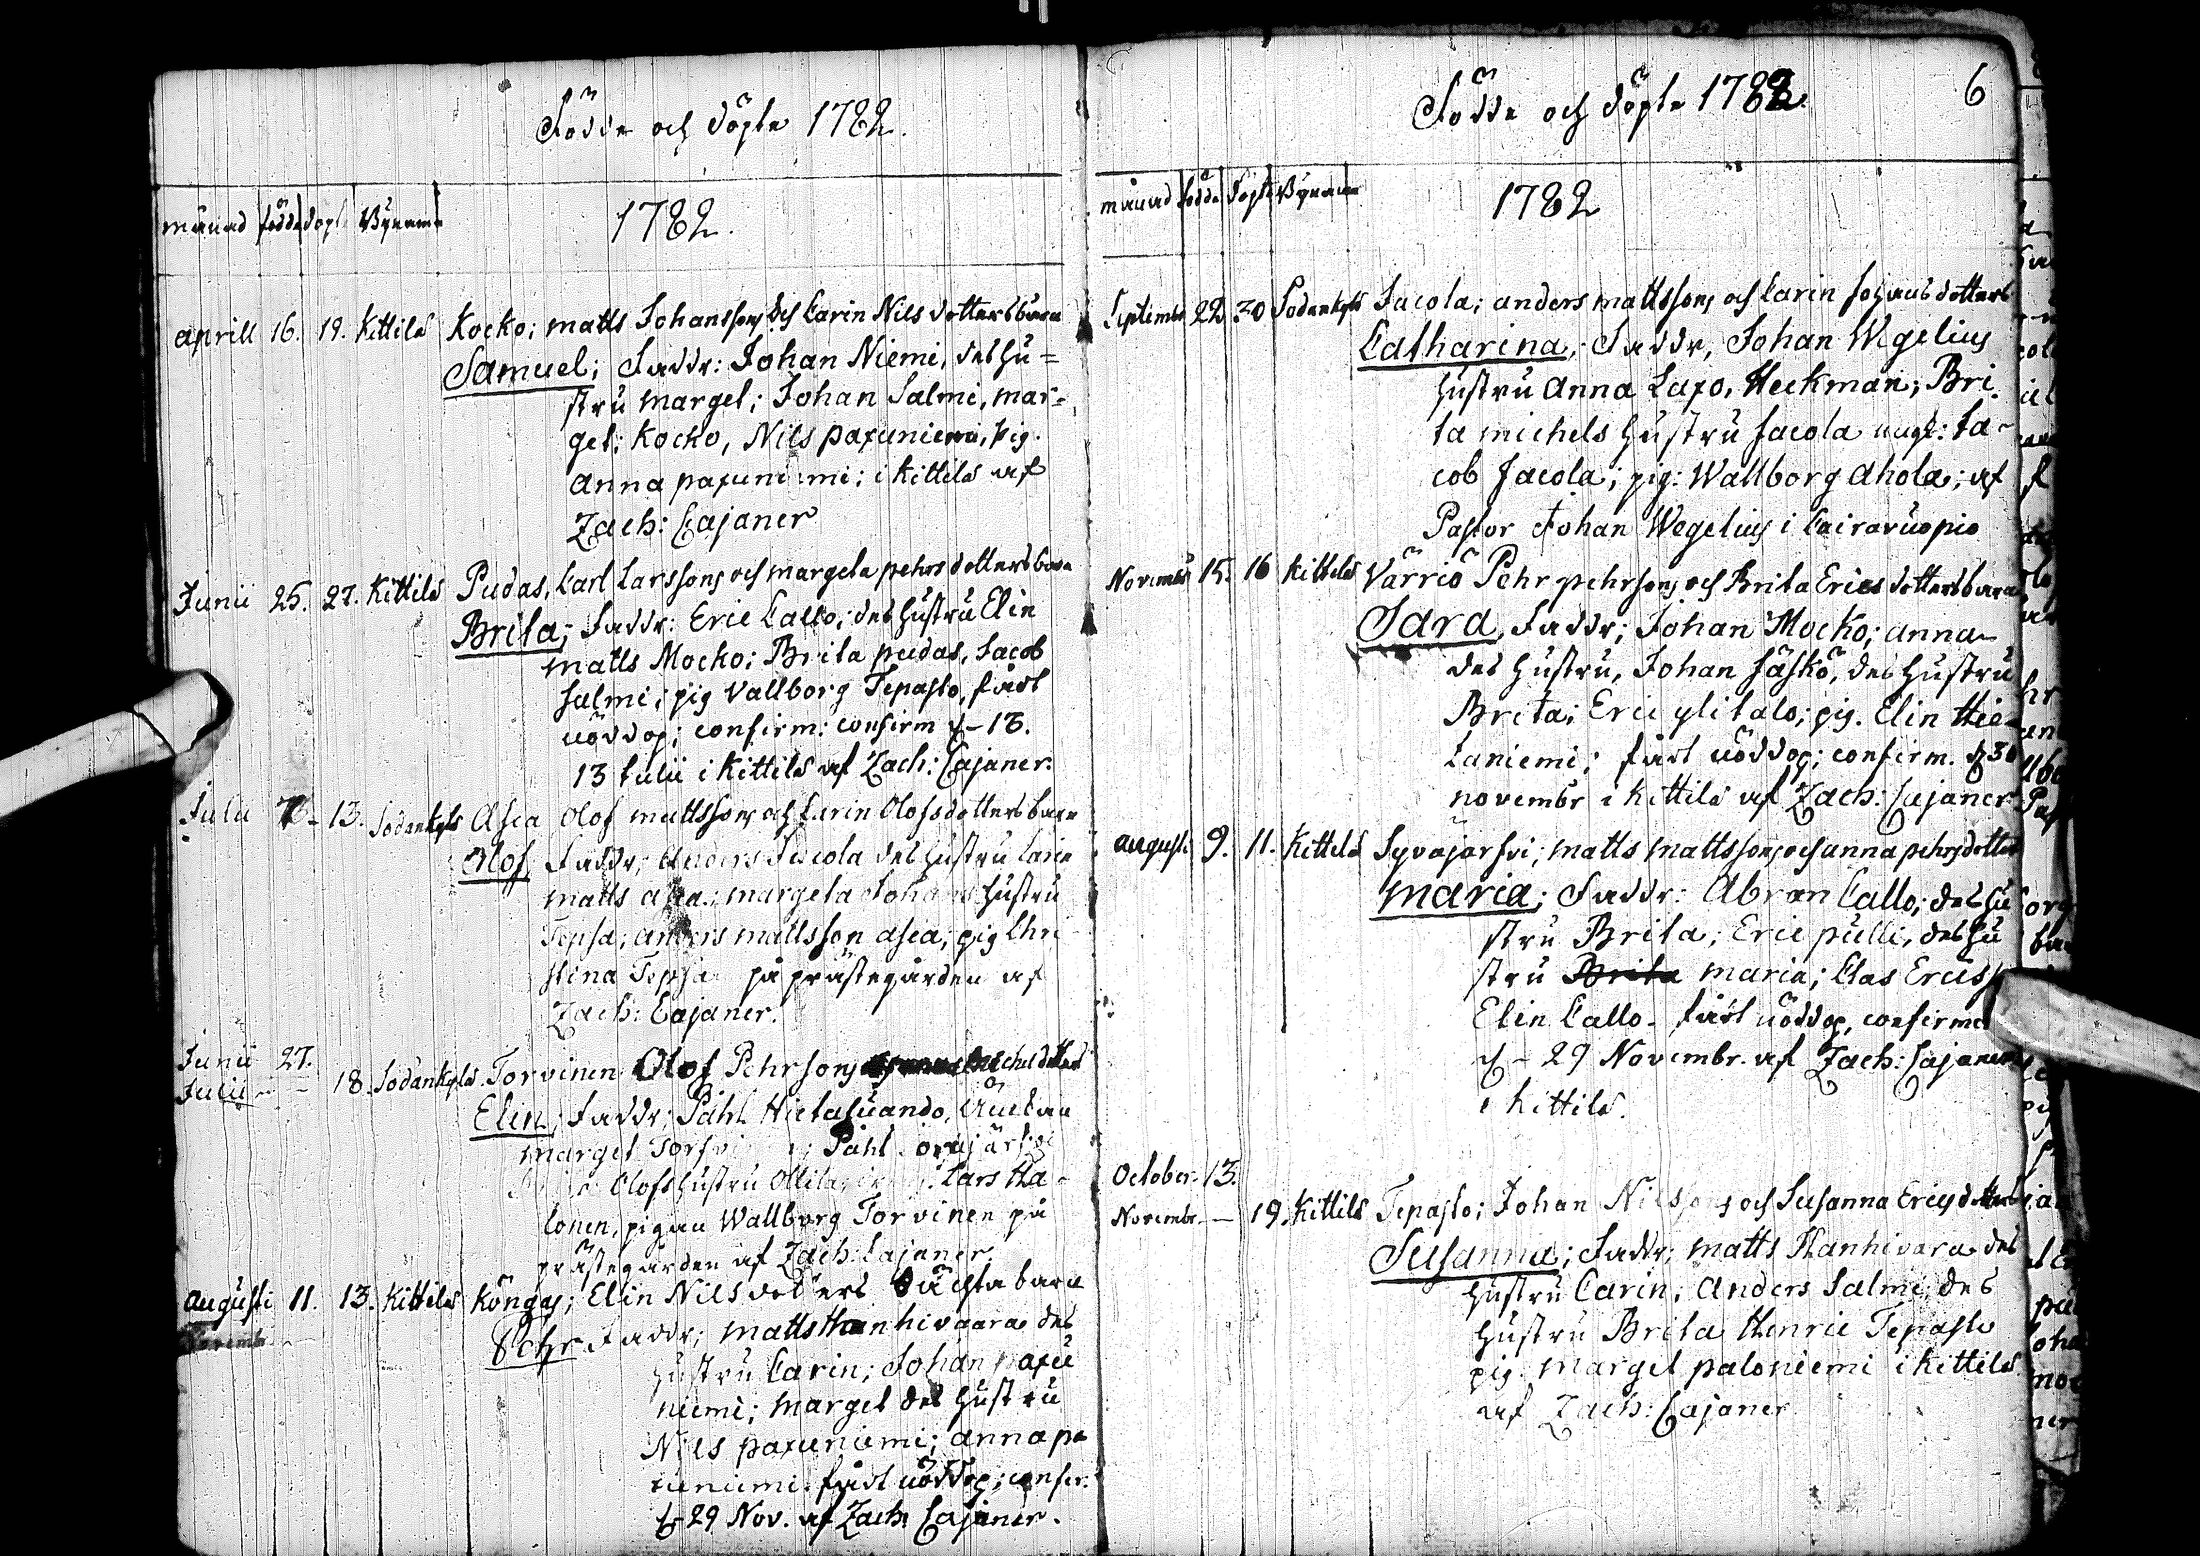 Födde och döpte 1782.
månad födde döpt Bynamn 1782.
aprill 16. 19. Kittilä Kocko; matts Johanssons och Carin Nils dotters barn
Samuel; Faddr: Johan Niemi, des hu=
stru marget; Johan Salmi, mar=
get: Kocko, Nils paxuniemi, pig.
anna paxuniemi; i Kittilä af
Zach: Cajaner
Junii 25. 27. Kittilä Pudas, Carl Larssons och margeta pehrs dotters barn
Brita; Faddr: Eric Callo; des hustru Elin
matts Mocko; Brita pudas, Jacob
Salmi; pig Vallborg Tepasto, fådt
nöddop; confirm: confirm d – 13.
13 Julii i Kittilä af Zach: Cajaner.
Julii 13. Sodankylä Asea Olof mattssons och Carin Olofsdotters barn
Olof Faddr; Anders Jacola des hustru Carin
matts asea; margeta Johans hustru
Tepsa; anders mattsson asea; pig Chri
stina Tepsa på prästegården af
Zach: Cajaner.
Junii 27.
Julii – 18. Sodankylä Torvinen Olof Pehrsons michels dotters
Elin; Faddr; Påhl Hietasuando,
marget Påhl
Olofs hustru Lars Ha=
lonen, pigan Wallborg Torvinen på
prästegården af Zach: Cajaner.
augusti 11. 13. Kittilä Köngas; Elin Nils dotters oächta barn
Novembr
Pehr Faddr; matts Hanhivaara des
hustru Carin; Johan paxu
niemi; marget des hustru
Nils paxuniemi; anna pa
xuniemi. fådt nöddop; confir.
d 29 Nov. af Zach: Cajaner.
Födde och döpte 1782. 6
månad födde döpte Bynamn 1782
Septembr 22 30 Sodankylä Jacola; anders mattssons och Carin Johans dotters
Catharina, Faddr, Johan Wegelius
hustru Anna Laxo, Heckman; Bri
ta michels hustru Jacola ungk: Ja=
cob Jacola; pig: Wallborg Ahola; af
Pastor Johan Wegelius i Cairavuopio
Novembr 15. 16 Kittilä Värriö Pehr pehrsons och Brita Erics dotters barn
Sara, Faddr; Johan Mocko; anna
des hustru, Johan Jäskö, des hustru
Brita; Eric ylitalo; pig. Elin Hie=
taniemi; fådt nöddop; confirm. d 30
novembr i Kittilä af Zach: Cajaner
augusti 9. 11. Kittilä Syväjärfvi; matts mattssons och anna pehrs dotter
maria; Faddr: Abram Callo; des hu
stru Brita; Eric pulli, des hu
stru Brita maria; Clas Ericss
Elin Callo. fådt nöddop, confirme
d – 29 Novembr. af Zach: Cajaner
i Kittilä.
October 13.
Novembr – 19. Kittilä Tepasto; Johan Nilssons och Susanna Erics dotters
Susanna; Faddr; matts Hanhivara des
hustru Carin; Anders Salmi; des
hustru Brita Henric Tepasto
pig. marget paloniemi i Kittilä
af Zach: Cajaner